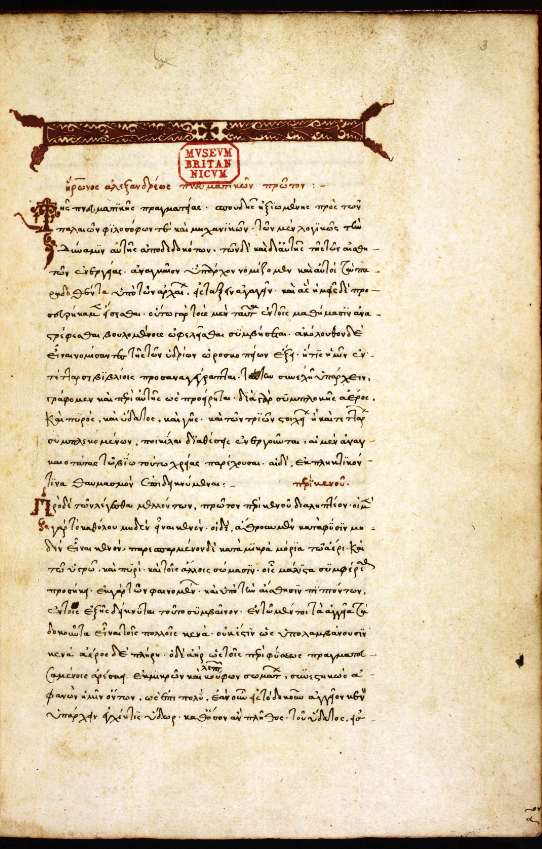 ἥρωνος ἀλεξανδρέως πνευματικῶν πρῶτον :-
Τῆς πνευματικῆς πραγματείας· σπουδῆς ἠξιωμένης πρὸς τῶν
παλαιῶν φιλοσόφων τε καὶ μηχανικῶν· τῶν μὲν λογικῶς τὴν
δύναμιν αὐτῆς ἀποδεδωκότων· τῶν δὲ καὶ δι' αὐτῆς τῆς τῶν αἰσθη-
τῶν ἐνεργείας· ἀναγκαῖον ὑπάρχειν νομίζομεν καὶ αὐτοὶ τὰ πα-
ραδοθέντα ὑπὸ τῶν ἀρχαίων, εἰς τάξιν ἀγαγεῖν· καὶ ἃ ἡμεῖς δὲ προ-
σευρήκαμεν εἰσθέσθαι· οὕτω γὰρ τοὺς μετὰ ταῦτα ἐν τοῖς μαθήμασιν ἀνα-
στρέφεσθαι βουλομένους ὠφελεῖσθαι συμβήσεται· ἀκόλουθον δὲ
εἶναι νομίσαντες τῇ τῶν ὑδρίων ὡροσκοπείων ἕξει· ἥτις ἡμῖν ἐν τέ-
τταρσι βιβλίοις προαναγέγραπται· τούτῳ συνεχῆ ὑπάρχειν,
γράφομεν καὶ περὶ αὐτῆς ὡς προείρηται· διὰ γὰρ συμπλοκῆς ἀέρος,
καὶ πυρὸς, καὶ ὕδατος, καὶ γῆς· καὶ τῶν τριῶν στοιχείων ἢ καὶ τεττάρων
συμπλεκομένων, ποικίλαι διαθέσεις ἐνεργοῦνται, αἱ μὲν ἀναγ-
καιοτάτας τῷ βίῳ τούτῳ χρείας παρέχουσαι· αἱ δὲ, ἐκπληκτικόν
τινα θαυμασμὸν ἐπιδεικνύμεναι :- περὶ κενοῦ.
Πρὸ δὲ τῶν λέγεσθαι μελλόντων, πρῶτον περὶ κενοῦ διαληπτέον· οἱ μὲν
γὰρ τὸ καθόλου μηδὲν εἶναι κενόν· οἱ δὲ, ἄθρουν μὲν κατὰ φύσιν μη-
δὲν εἶναι κενὸν, παρεσπαρμένον δὲ κατὰ μικρὰ μόρια τῷ ἀέρι· καὶ
τῷ ὑγρῷ, καὶ πυρί· καὶ τοῖς ἄλλοις σώμασιν, οἷς μάλιστα συμφέρεσθαι
προσήκει· ἐκ γὰρ τῶν φαινομένων, καὶ ὑπὸ τὴν αἴσθησιν πιπτόντων,
ἐν τοῖς ἑξῆς δείκνυται τοῦτο συμβαῖνον· ἔτι μέντοι τὰ ἀγγεῖα τὰ
δοκοῦντα εἶναι τοῖς πολλοῖς κενὰ· οὐκ ἔστιν ὡς ὑπολαμβάνουσιν
κενὰ, ἀέρος δὲ πλήρη· ὁ δὲ ἀὴρ ὡς τοῖς περὶ φύσεως πραγματευ-
σαμένοις ἀρέσκει, ἐκ μικρῶν καὶ κούφων λεπτῶν σωμάτων, συνέστηκεν ἀ-
φανῶν ἡμῖν ὄντων, ὡς ἐπὶ πολύ, ἐὰν οὖν εἰς τὸ δοκοῦν ἀγγεῖον κενὸν
ὑπάρχειν ἐγχέῃ τις ὕδωρ· καθ' ὅσον ἂν πλῆθος τοῦ ὕδατος, εἰς
MVSEVM
BRITAN
NICVM
3